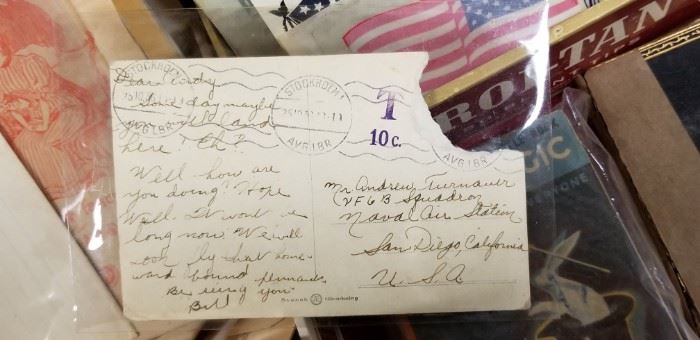 Dear Andy
Some day maybe
you will land
here? Eh?
Well how are
you doing? Hope
Well. It wont be
long now. We will
soon by that home-
ward bound
Be seing you
Bill
STOCKHOLM
AVG1BR
STOCKHOLM
AVG1BR
AVG1BR
T
10 c.
Mr. Andrew Turnauer
VF 6 B Squadron
Naval Air Station
San Diego, California
U. S. A
Svensk
ROI-TAN
GIC